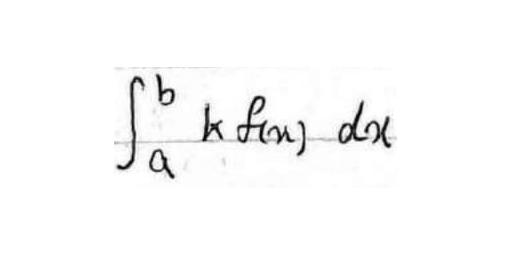 ∫_a^b k f(x) dx